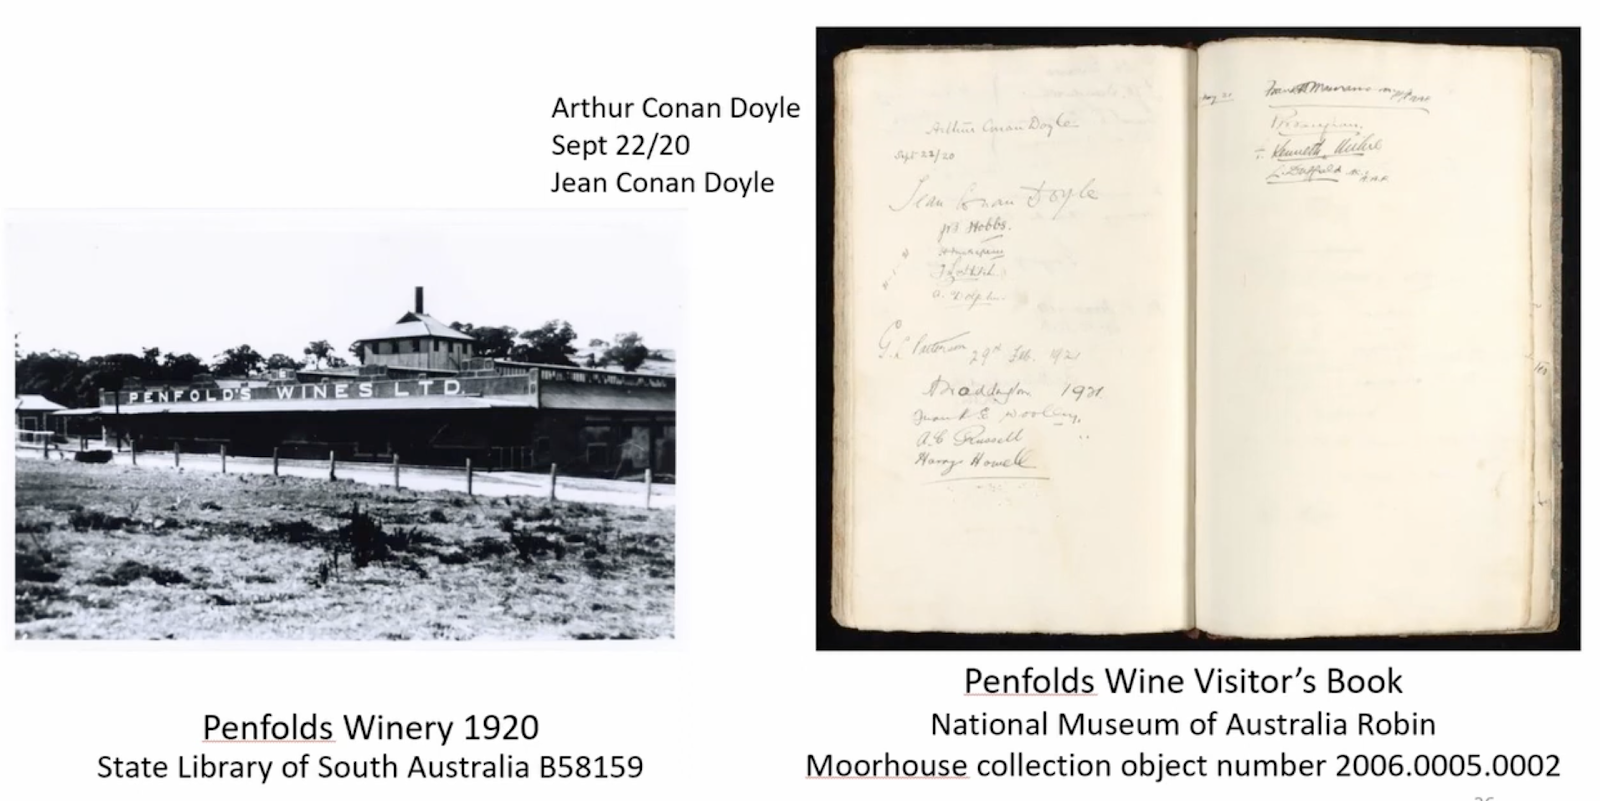 Arthur Conan Doyle
Sept 22/20
Jean Conan Doyle
PENFOLD'S WINES LTD.
Penfolds Winery 1920
State Library of South Australia B58159
Arthur Conan Doyle
Sept 22/20
Jean Conan Doyle
Hobbs.
G. L. Patterson 29th Feb. 1921
1921
Frank E Woolley,
A. C. Russell
Howell
Kenneth
Penfolds Wine Visitor's Book
National Museum of Australia Robin
Moorhouse collection object number 2006.0005.0002